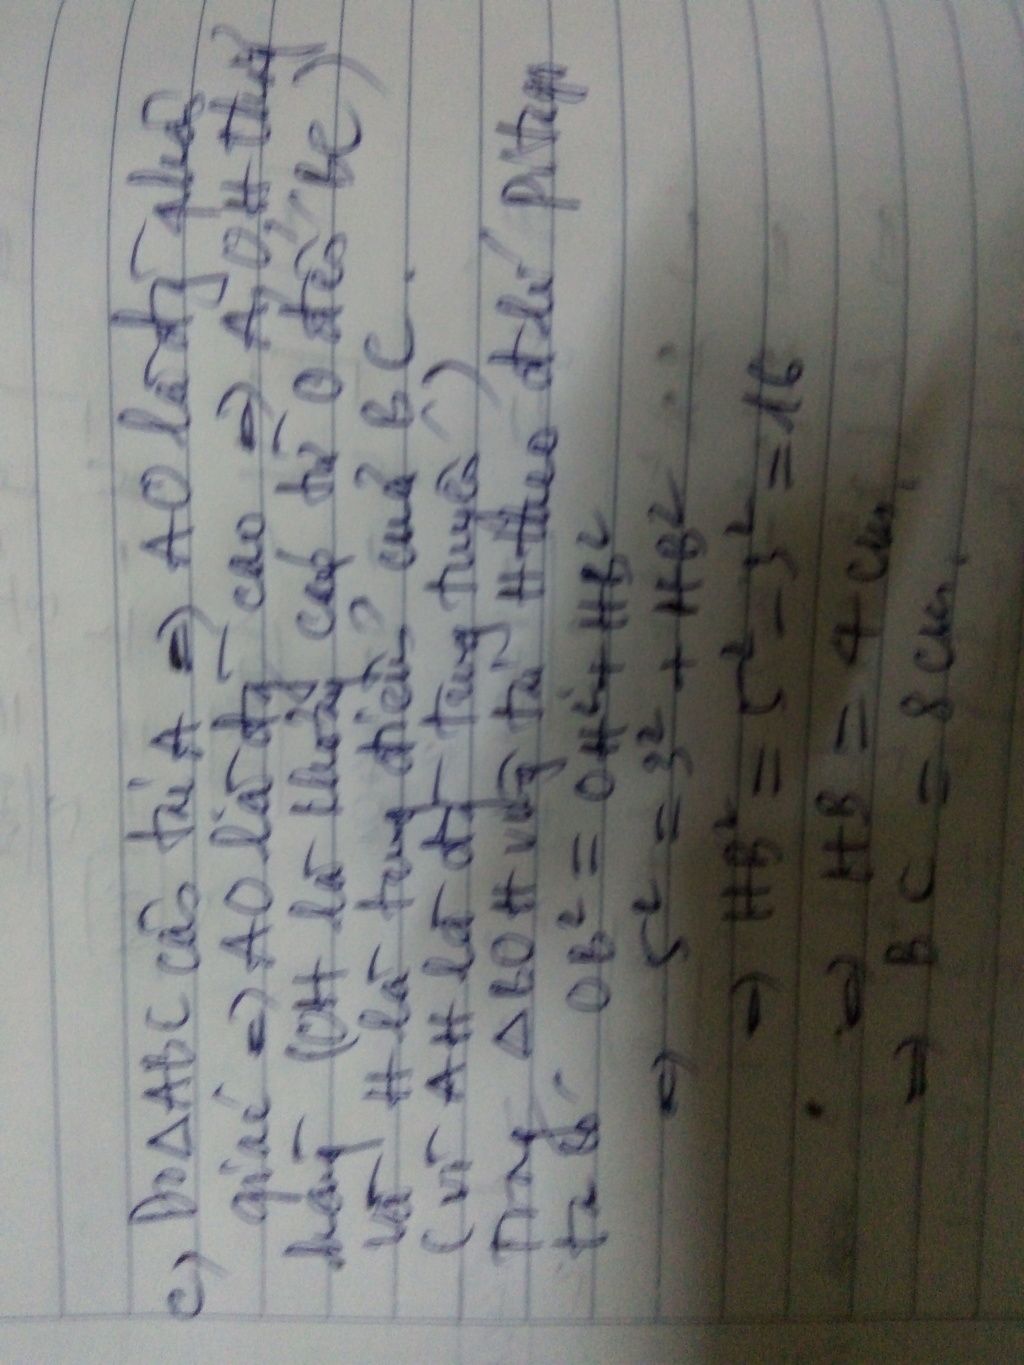 c) Do ΔABC cân tại A => AO là đg phân
giác => AO là đg cao => A, O, H thẳng
hàng (OH là khoảng cách từ O đến BC)
và H là trung điểm của BC.
(vì AH là đg trung tuyến)
Trong ΔBOH vuông tại H theo đlí pitago
ta có OB² = OH² + HB²
=> 5² = 3² + HB²
=> HB² = 5² - 3² = 16
=> HB = 4 cm
=> BC = 8 cm.